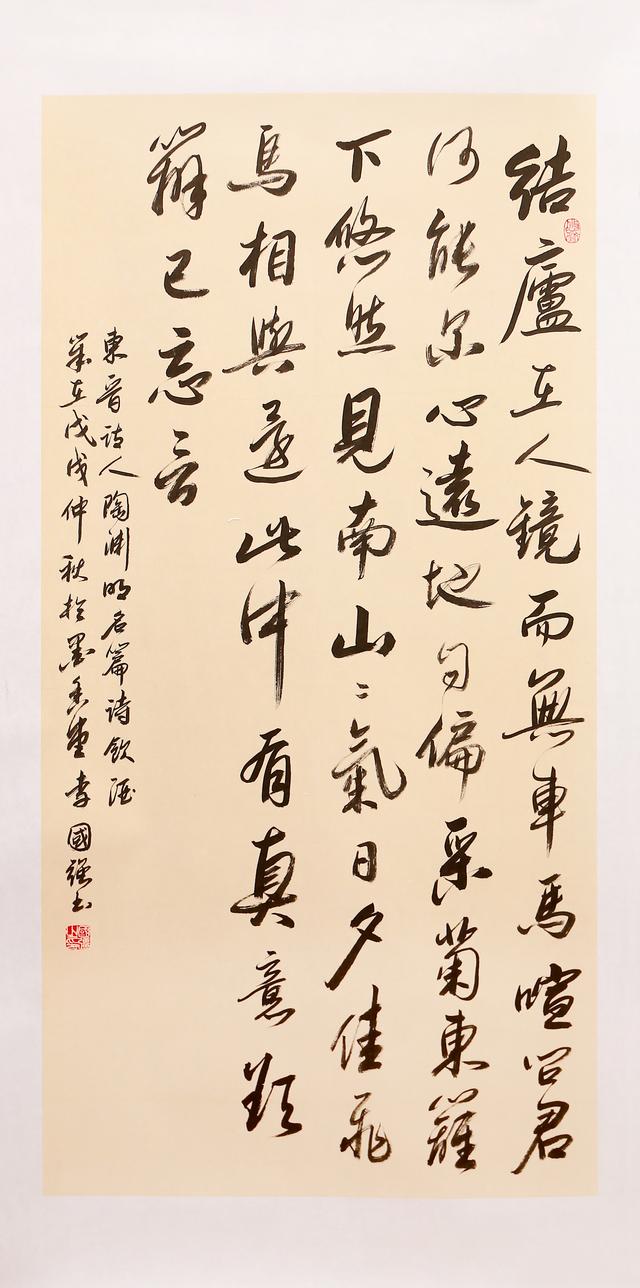 結廬在人鏡而無車馬喧问君
何能尔心遠地自偏采菊東籬
下悠然見南山〻氣日夕佳飛
鳥相與還此中有真意欲
辨已忘言
東晋诗人陶渊明名篇詩飲酒
岁在戊戌仲秋於墨香堂李國強书